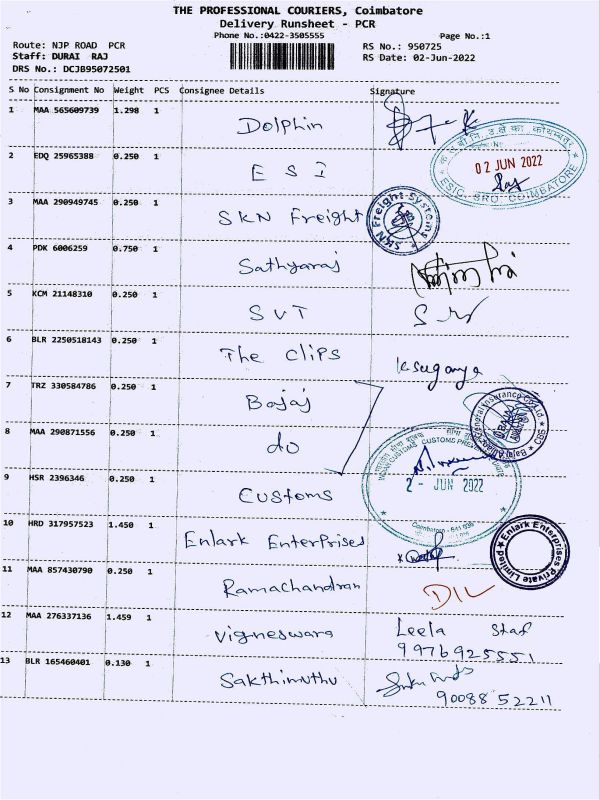 THE PROFESSIONAL COURIERS, Coimbatore
Delivery Runsheet - PCR
Phone No.:0422-3505555
Page No.:1
Route: NJP ROAD PCR
RS No.: 950725
Staff: DURAI RAJ
RS Date: 02-Jun-2022
DRS No.: DCJB95072501
S No Consignment No Weight PCS Consignee Details Signature
1 MAA 565609739 1.298 1 Dolphin
02 JUN 2022
ESIC, SRO, COIMBATORE
2 EDQ 25965388 0.250 1 E S I
3 MAA 290949745 0.250 1 SKN Freight
SKN Freight Systems
4 PDK 6006259 0.750 1 Sathyaraj
5 KCM 21148310 0.250 1 SVT
6 BLR 2250518143 0.250 1 The Clips K.Suganya
7 TRZ 330584786 0.250 1 Bajaj
8 MAA 290871556 0.250 1 do
9 HSR 2396346 0.250 1 Customs
2 - JUN 2022
10 HRD 317957523 1.450 1 Enlark Enterprises
Enlark Enterprises Private Limited
11 MAA 857430790 0.250 1 Ramachandran DIL
12 MAA 276337136 1.459 1 Vigneswara Leela Staf
9976925551
13 BLR 165460401 0.130 1 Sakthimuthu
90088 52211